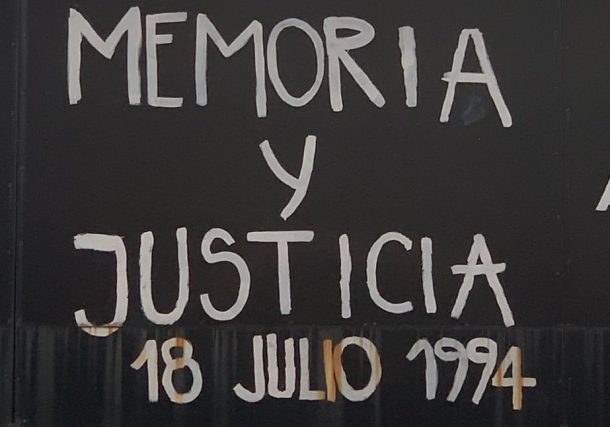 MEMORIA
Y
JUSTICIA
18 JULIO 1994